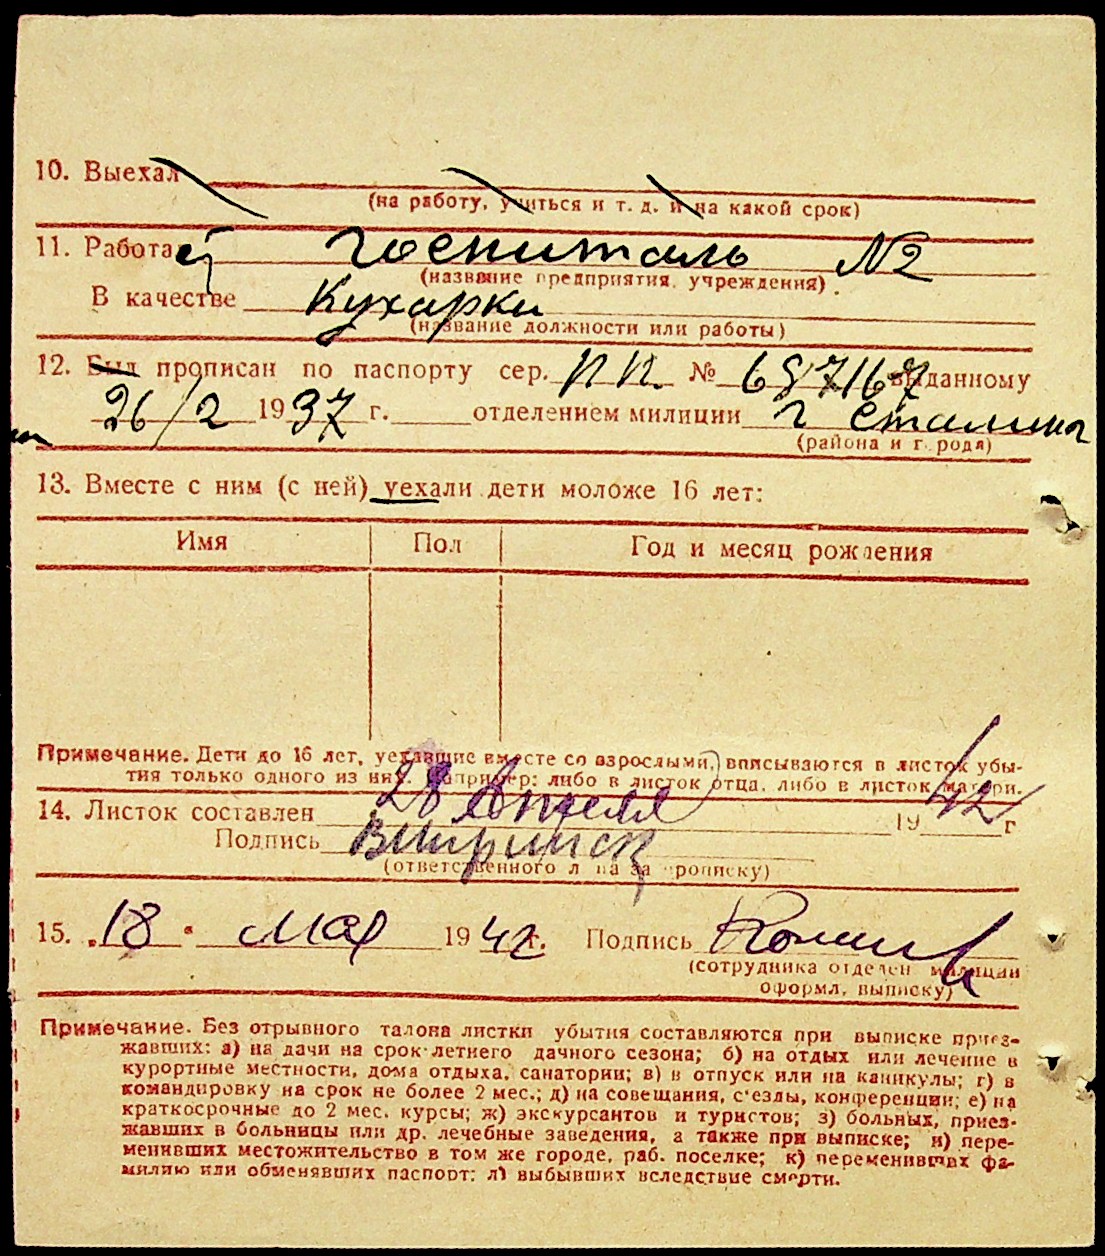 10. Выехал
(на работу, учиться и т. д. и на какой срок)
11. Работает Госпиталь №2
(название предприятия, учреждения)
В качестве Кухарки
(название должности или работы)
12. Был прописан по паспорту сер. П П. № 687167 выданному
26/2 1937 г. отделением милиции г Сталина
(района и города)
13. Вместе с ним (с ней) уехали дети моложе 16 лет:
Имя Пол Год и месяц рождения
Примечание. Дети до 16 лет, уехавшие вместе со взрослыми, вписываются в листок убы-
тия только одного из них. Например: либо в листок отца, либо в листок матери.
14. Листок составлен 28 Апреля 1942 г
Подпись
(ответственного лица за прописку)
15. „18" мая 1942 г. Подпись
(сотрудника отделен. милиции
оформл. выписку)
Примечание. Без отрывного талона листки убытия составляются при выписке приез-
жавших: а) на дачи на срок летнего дачного сезона; б) на отдых или лечение в
курортные местности, дома отдыха, санатории; в) в отпуск или на каникулы; г) в
командировку на срок не более 2 мес.; д) на совещания, с'езды, конференции; е) на
краткосрочные до 2 мес. курсы; ж) экскурсантов и туристов; з) больных, приез-
жавших в больницы или др. лечебные заведения, а также при выписке; и) пере-
менивших местожительство в том же городе, раб. поселке; к) переменивших фа-
милию или обменявших паспорт; л) выбывших вследствие смерти.